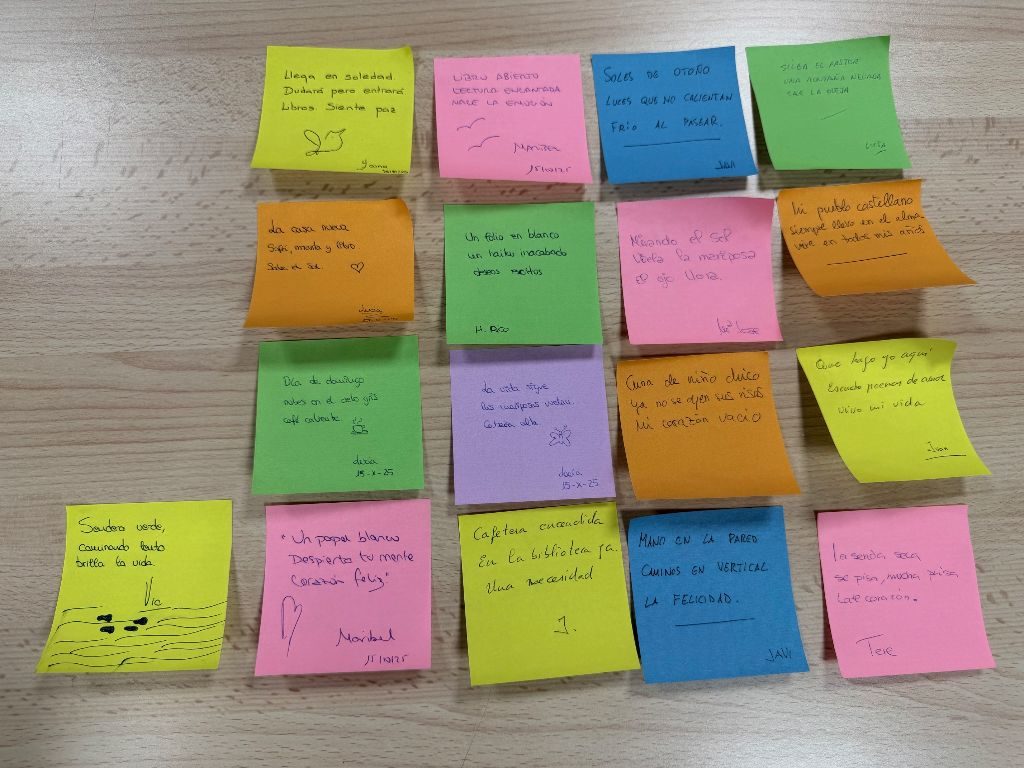 Llega en soledad.
Dudará pero entrará
Libros. Siente paz
LIBRO ABIERTO
LECTURA ENCANTADA
NACE LA EMOCIÓN
Maribel
15/10/25
SOLES DE OTOÑO
LUCES QUE NO CALIENTAN
FRÍO AL PASEAR.
JAVI
SILBA EL PASTOR
UNA MONTAÑA NEVADA
CAE LA OVEJA
La casa nueva
Sofá, manta y libro
Sale el Sol.
Lucía
Un folio en blanco
un haiku inacabado
deseos escritos
H. Rico
Mirando el Sol
Vuela la mariposa
El ojo llora.
Mª Jose
Mi pueblo castellano
siempre llevo en el alma
vive en todos mis años
Día de domingo
nubes en el cielo gris
café caliente.
Lucía
15-X-25
La vida sigue
Las mariposas vuelan.
Cabeza alta.
Lucía
15-X-25
Cuna de niño chico
ya no se oyen sus risas
Mi corazón vacío
Que hago yo aquí
Escucho poemas de amor
Vivo mi vida
Juan
Sendero verde,
caminando lento
brilla la vida.
Vic
"Un papel blanco
Despierta tu mente
Corazón feliz"
Maribel
15/10/25
Cafetera encendida
En la biblioteca ya.
Una necesidad
J.
MANO EN LA PARED
CAMINOS EN VERTICAL
LA FELICIDAD.
JAVI
La senda seca
se pisa, mucha prisa
Late corazón.
Tere